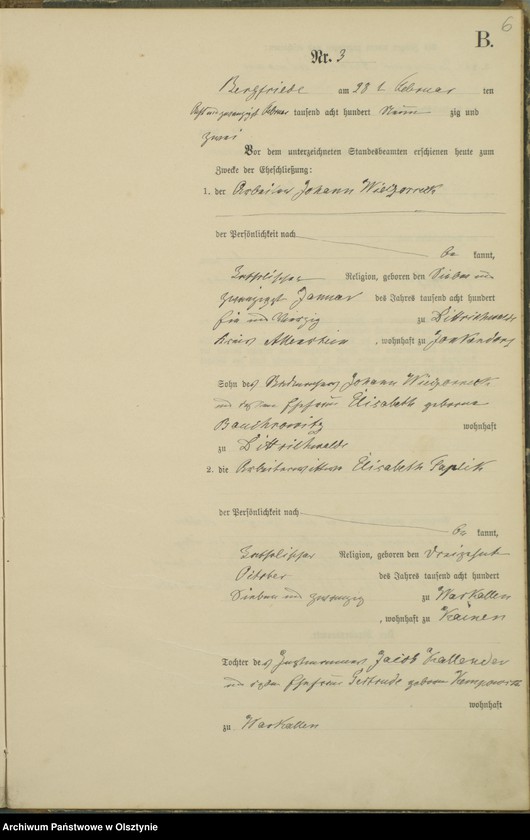 6
B.
Nr. 3
Bergfriede am 28 t Februar ten
Acht und zwanzigst Februar tausend acht hundert Neun zig und
zwei
Vor dem unterzeichneten Standesbeamten erschienen heute zum
Zwecke der Eheschließung:
1. der Arbeiter Johann Wieczorreck
der Persönlichkeit nach
be kannt,
katholischer Religion, geboren den Sieben und
zwanzigst Januar des Jahres tausend acht hundert
und Vierzig zu Dittrichswalde
Kreis Allenstein, wohnhaft zu Jonkendorf
Sohn des Johann Wieczorreck
und dessen Ehefrau Elisabeth geborne
wohnhaft
zu Dittrichswalde
2. die Arbeiterwittwe Elisabeth Paplik
der Persönlichkeit nach
be kannt,
katholischer Religion, geboren den Dreizehnt
October des Jahres tausend acht hundert
Sieben und zwanzig zu Warkallen
, wohnhaft zu Kainen
Tochter des Instmannes Jacob Kallender
und dessen Ehefrau Gertrude geborne
wohnhaft
zu Warkallen
Archiwum Państwowe w Olsztynie